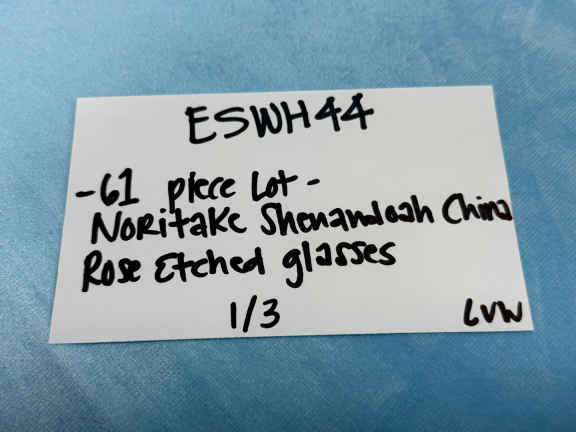 ESWH44
-61 piece Lot -
Noritake Shenandoah China
Rose Etched glasses
1/3
LVW